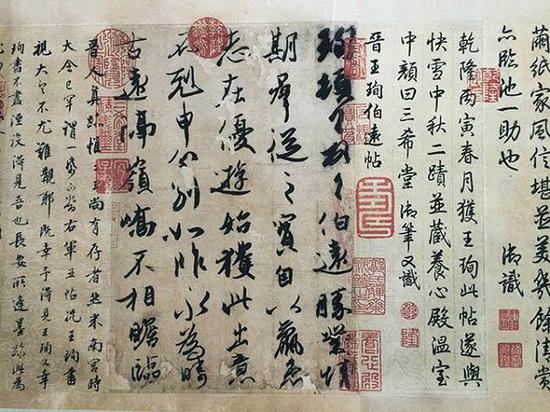 繭紙家風信堪並美幾餘清賞
亦臨池一助也 御識
乾隆丙寅春月獲王珣此帖遂與
快雪中秋二蹟並藏養心殿溫室
中顏曰三希堂 御筆又識
晉王珣伯遠帖
珣頓首頓首伯遠勝業情
期群從之寶自以羸患
志在優遊始獲此出意
不剋申分別如昨永為疇
古遠隔嶺嶠不相瞻臨
晉人真跡惟二王尚有存者然米南宮時
大令已罕謂一紙可當右軍五帖況王珣書
視大令不尤難覯耶既幸予得見王珣又幸
珣書不盡湮沒得見吾也長安所逢墨跡此為